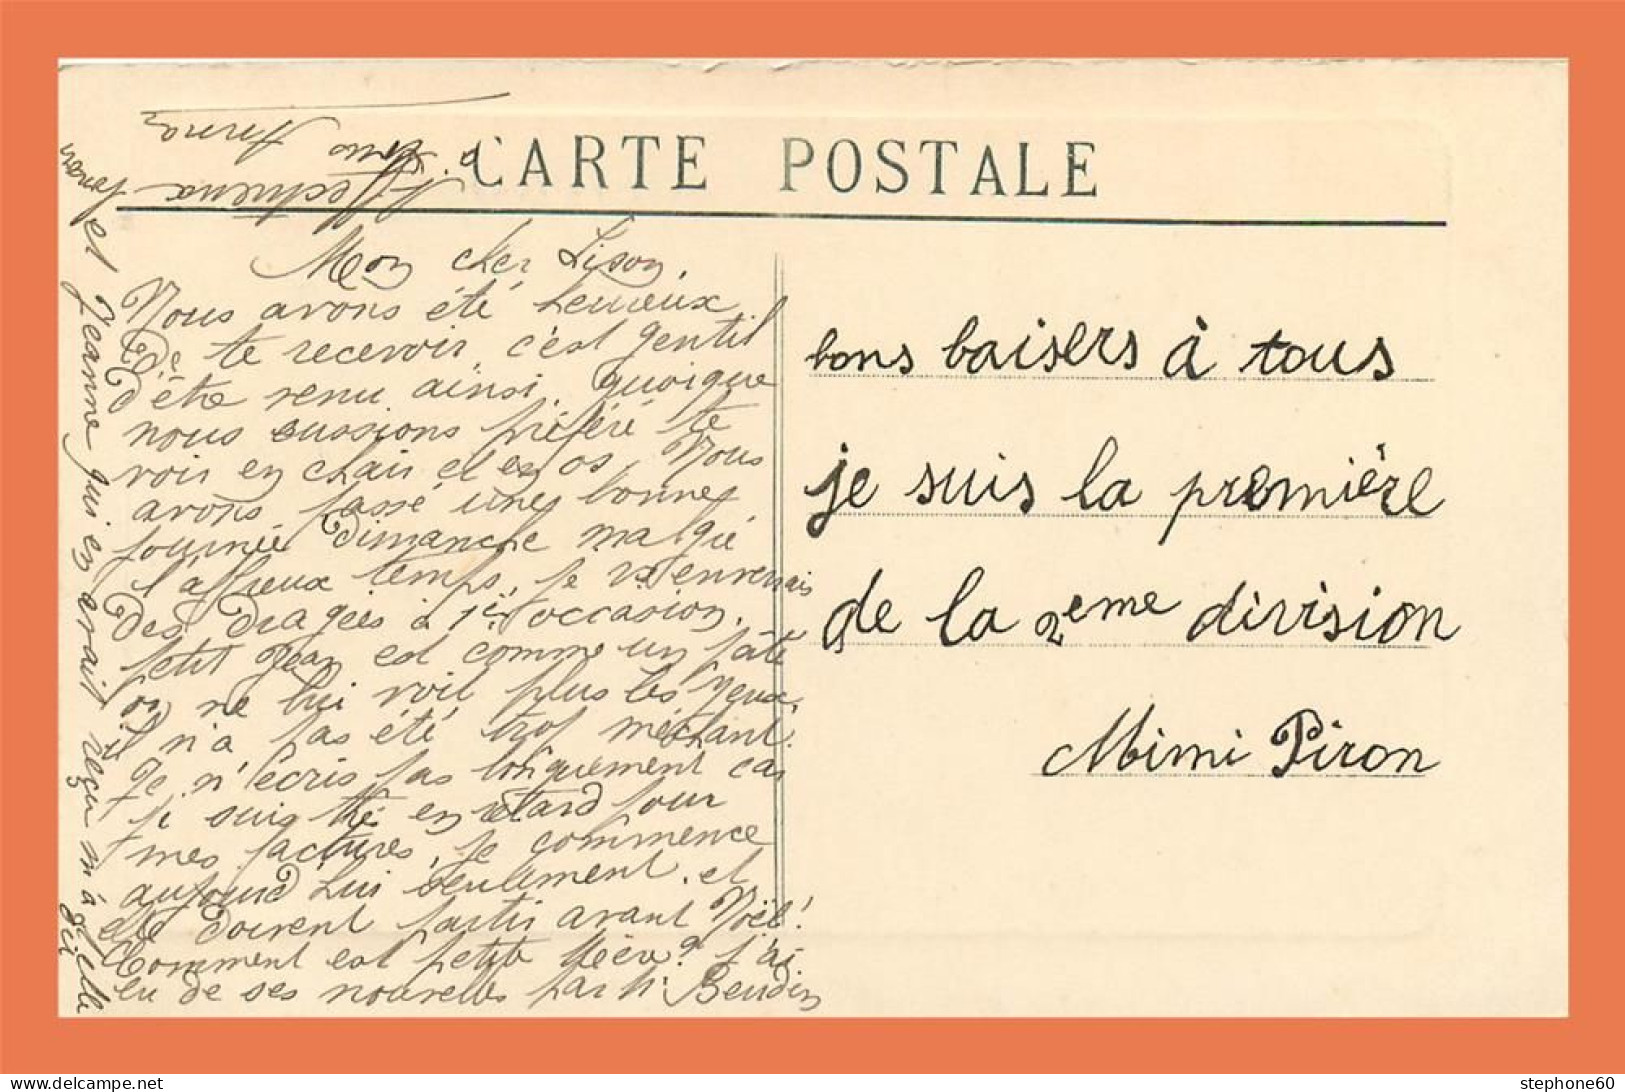 CARTE POSTALE
Mon cher Lison,
Nous avons été heureux
de te recevoir, c'est gentil
d'être venu ainsi, quoique
nous eussions préféré te
voir en chair et en os, Nous
avons passé une bonne
journée dimanche malgré
l'affreux temps, je enverrais
des dragées à 1ère occasion.
petit Jean est comme un pâté
on ne lui voit plus les yeux.
il n'a pas été trop méchant.
Je n'écris pas longuement car
je suis très en retard pour
mes factures, je commence
aujourd hui seulement. et
elle doivent partir avant Noël!
Comment est petite Mère? j'ai
eu de ses nouvelles par Beudin
et Jeanne qui en avait reçu m'a-t-elle
dit
Affectueux
à
bons baisers à tous
je suis la première
de la 2eme division
Mimi Piron
stephone60